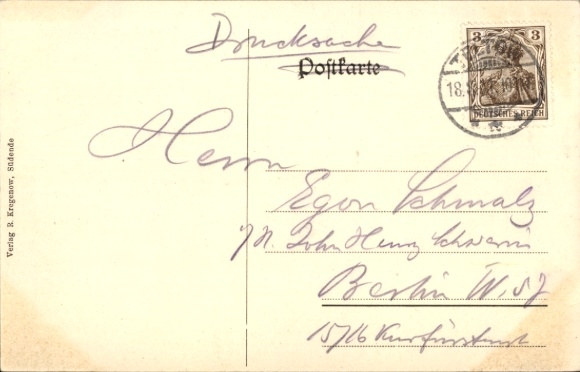 Drucksache
Postkarte
3 3
DEUTSCHES REICH
TELTOW
18.
Herrn
Egon Schmalz
John Henry Schwerin
Berlin W. 57
15/16 Kurfürstenst
Verlag R. Kregenow, Südende